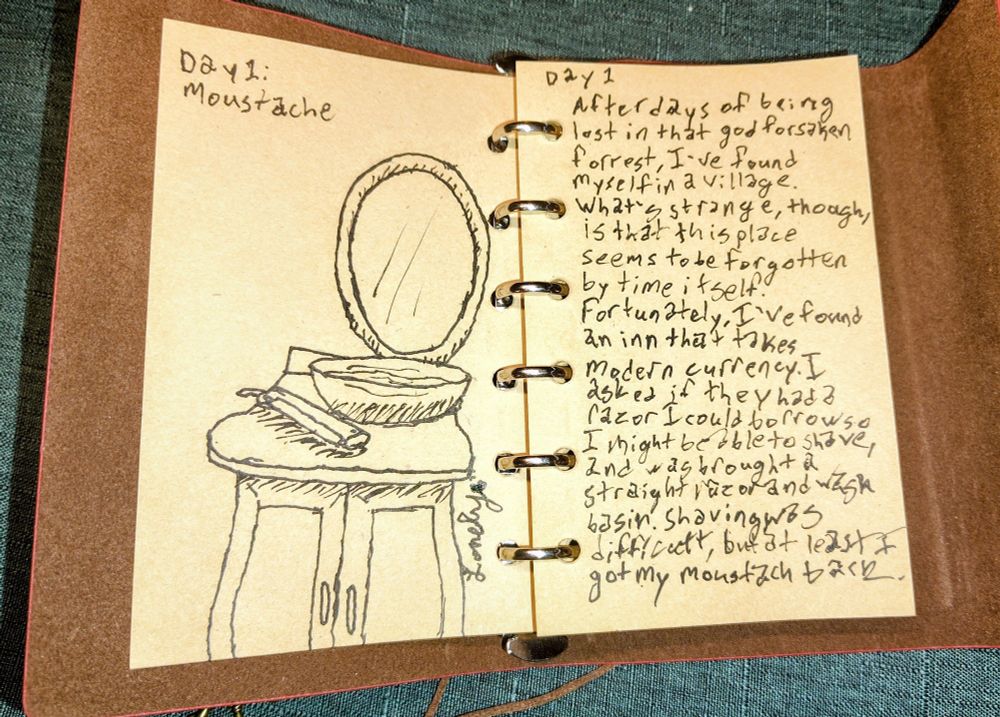 Day 1:
Moustache
Day 1
After days of being
lost in that god forsaken
forrest, I've found
myself in a village.
What's strange, though,
is that this place
seems to be forgotten
by time itself.
Fortunately, I've found
an inn that takes
modern currency. I
asked if they had a
razor I could borrow so
I might be able to shave,
and was brought a
straight razor and wash
basin. Shaving was
difficult, but at least I
got my moustach back.